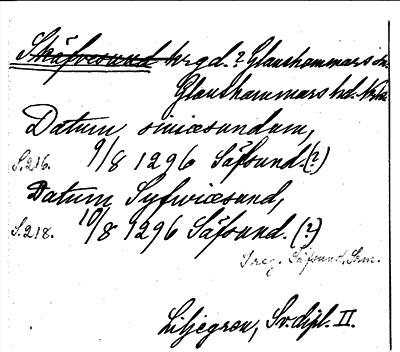 Skäfvesund hrgd.? Glanshammars sn
Glanshammars hd. Nke
Datum siviæsundum,
S.216. 9/8 1296 Säfsund.(?)
Datum Syfwiæsund,
S.218. 10/8 1296 Säfsund.(?)
Säfsund, Srm.
Liljegren, Sv. dipl. II.